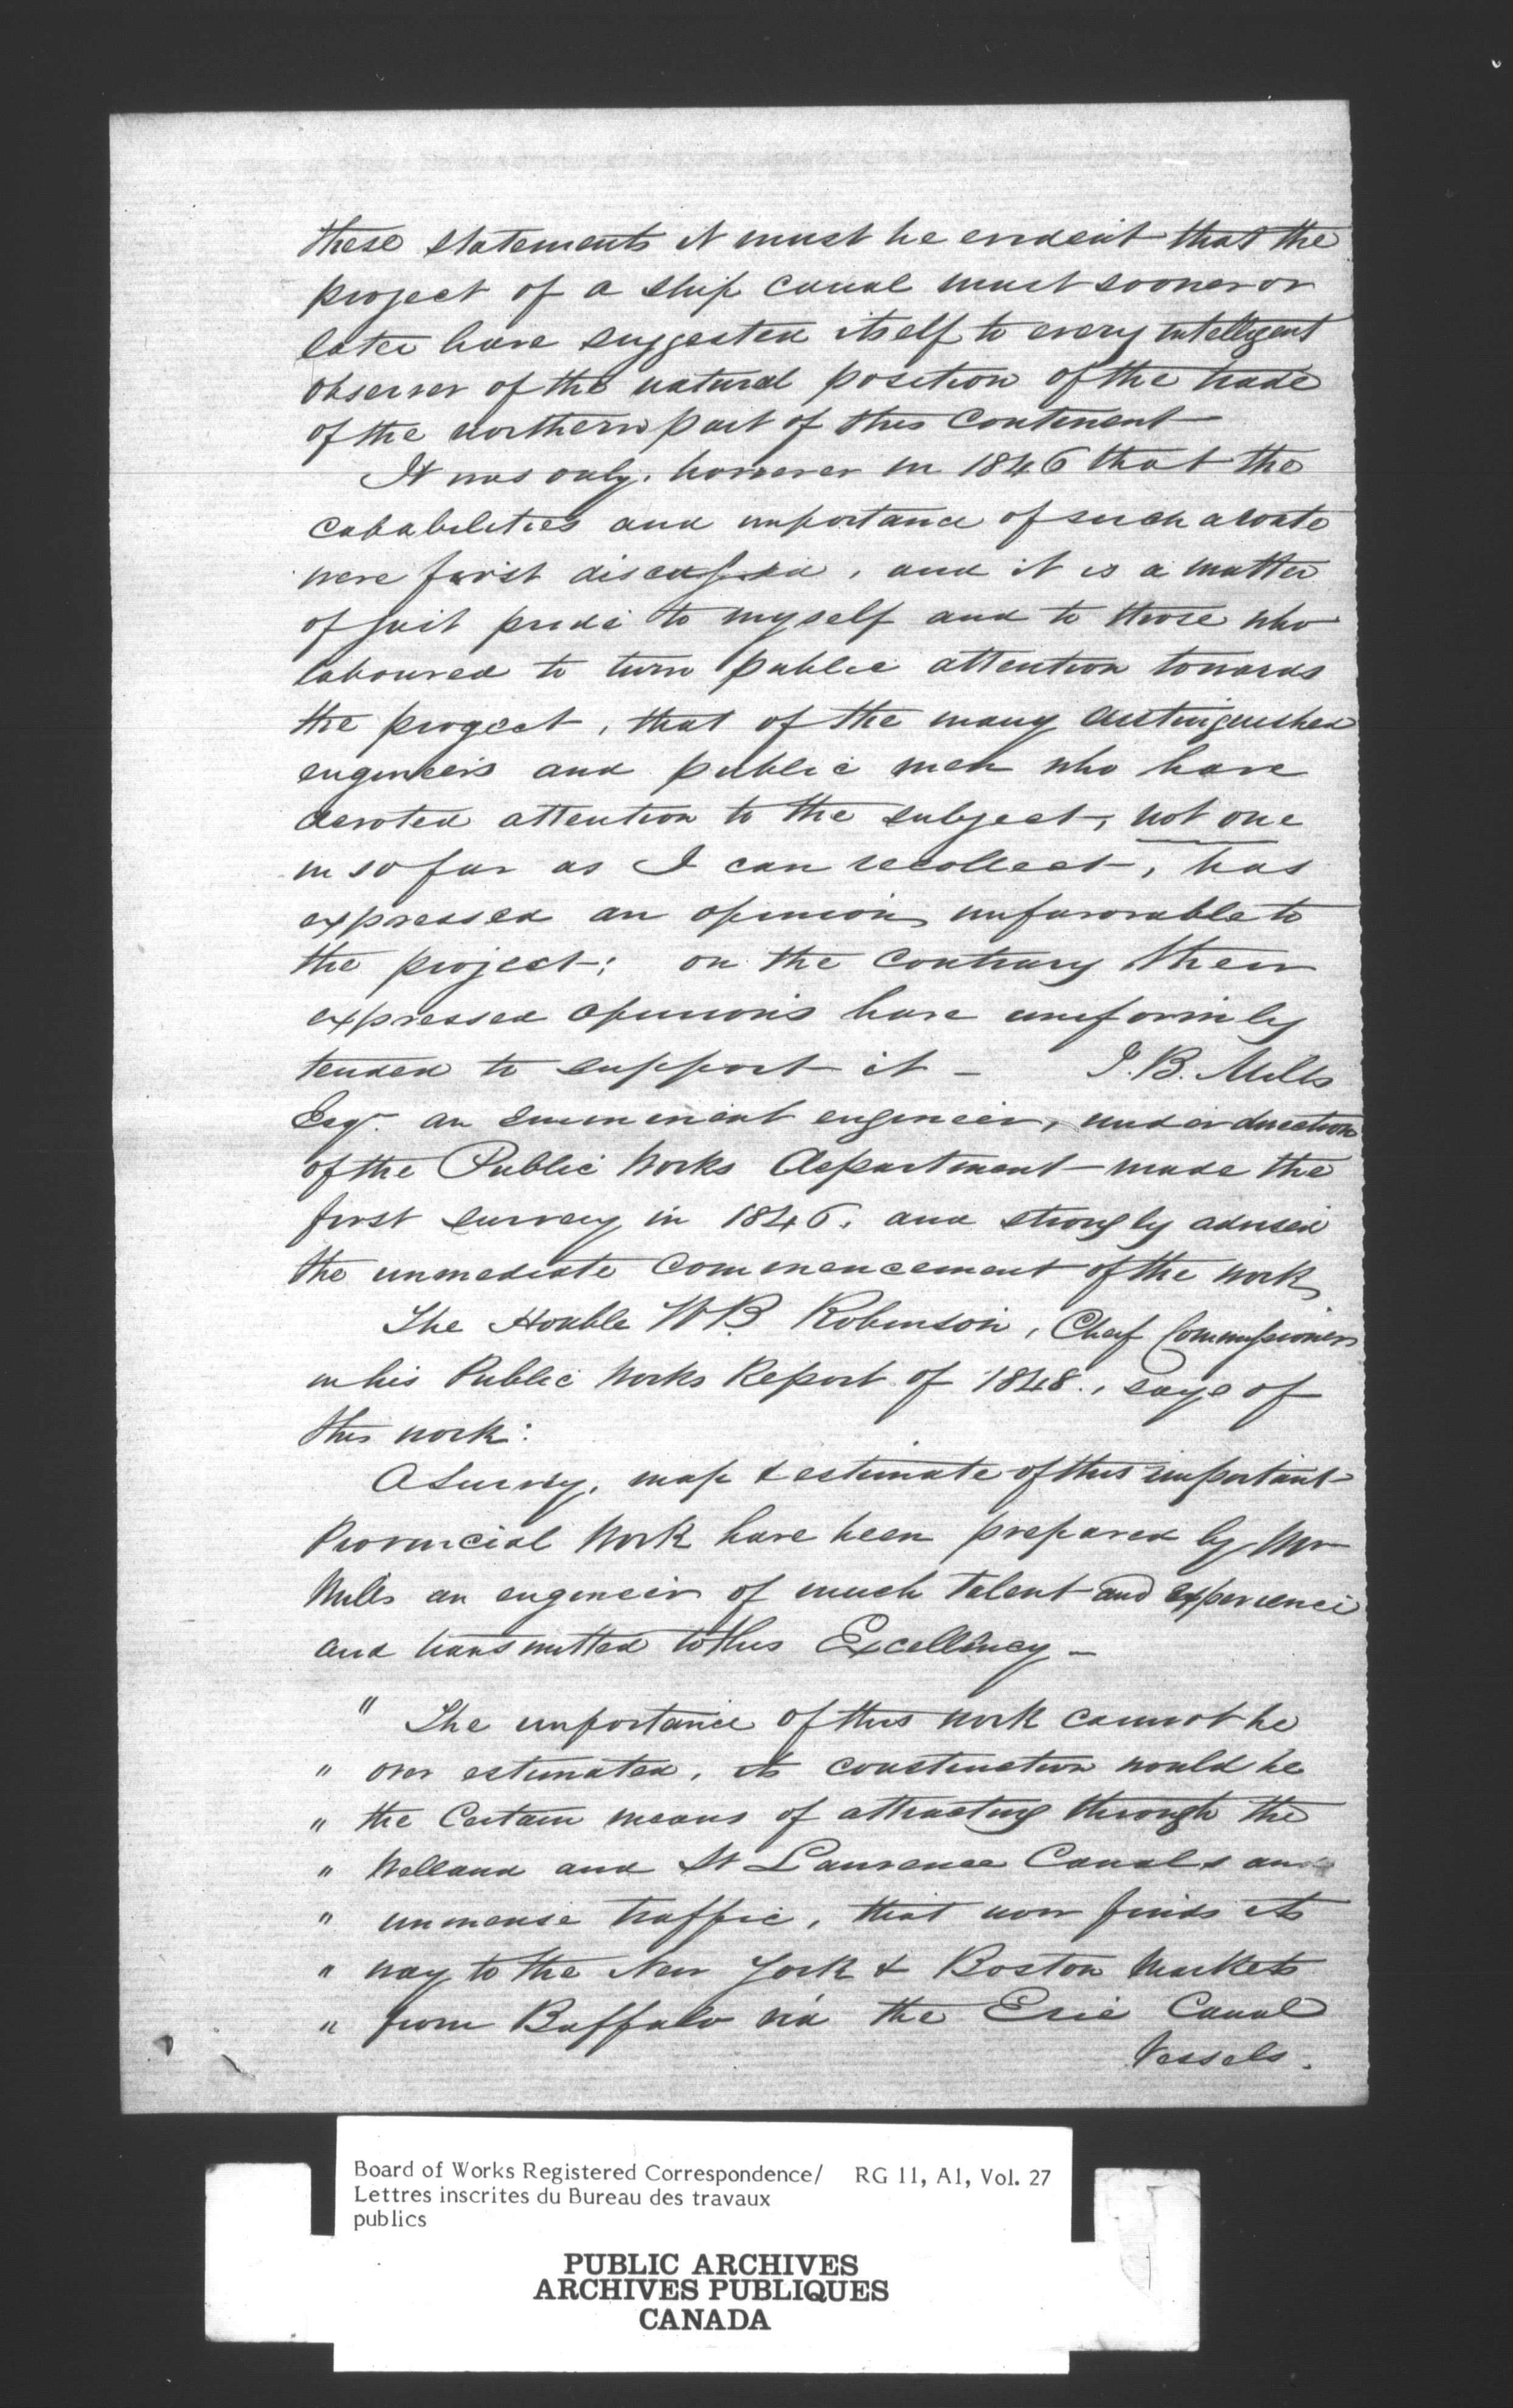 these statements it must be evident that the
project of a ship canal must sooner or
later have suggested itself to every intelligent
observer of the natural position of the trade
of the northern part of this Continent
It was only, however in 1846 that the
capabilities and importance of such a route
were first discussed, and it is a matter
of just pride to myself and to those who
laboured to turn public attention towards
the project, that of the many distinguished
engineers and public men who have
devoted attention to the subject, not one
in so far as I can recollect, has
expressed an opinion unfavorable to
the project; on the Contrary their
expressed opinions have uniformily
tended to support it - J. B. Mills
Esqr. an emminent engineer, under direction
of the Public Works Department - made the
first survey in 1846, and strongly advised
the immediate Commencement of the work
The Honble W B. Robinson, Chief Commissioner
in his Public Works Report of 1848., says of
this work:
A Survey, map & estimate of this important
Provincial Work have been prepared by Mr
Mills an engineer of much talent and experience
and transmitted to His Excellency -
" The importance of this work cannot be
" over estimated, its construction would be
" the Certain means of attracting through the
" Welland and St Lawrence Canals an
" immense traffic, that now finds its
" way to the New York & Boston Markets
" from Buffalo via the Erie Canal
Vessels.
Board of Works Registered Correspondence/ RG 11, A1, Vol. 27
Lettres inscrites du Bureau des travaux
publics
PUBLIC ARCHIVES
ARCHIVES PUBLIQUES
CANADA